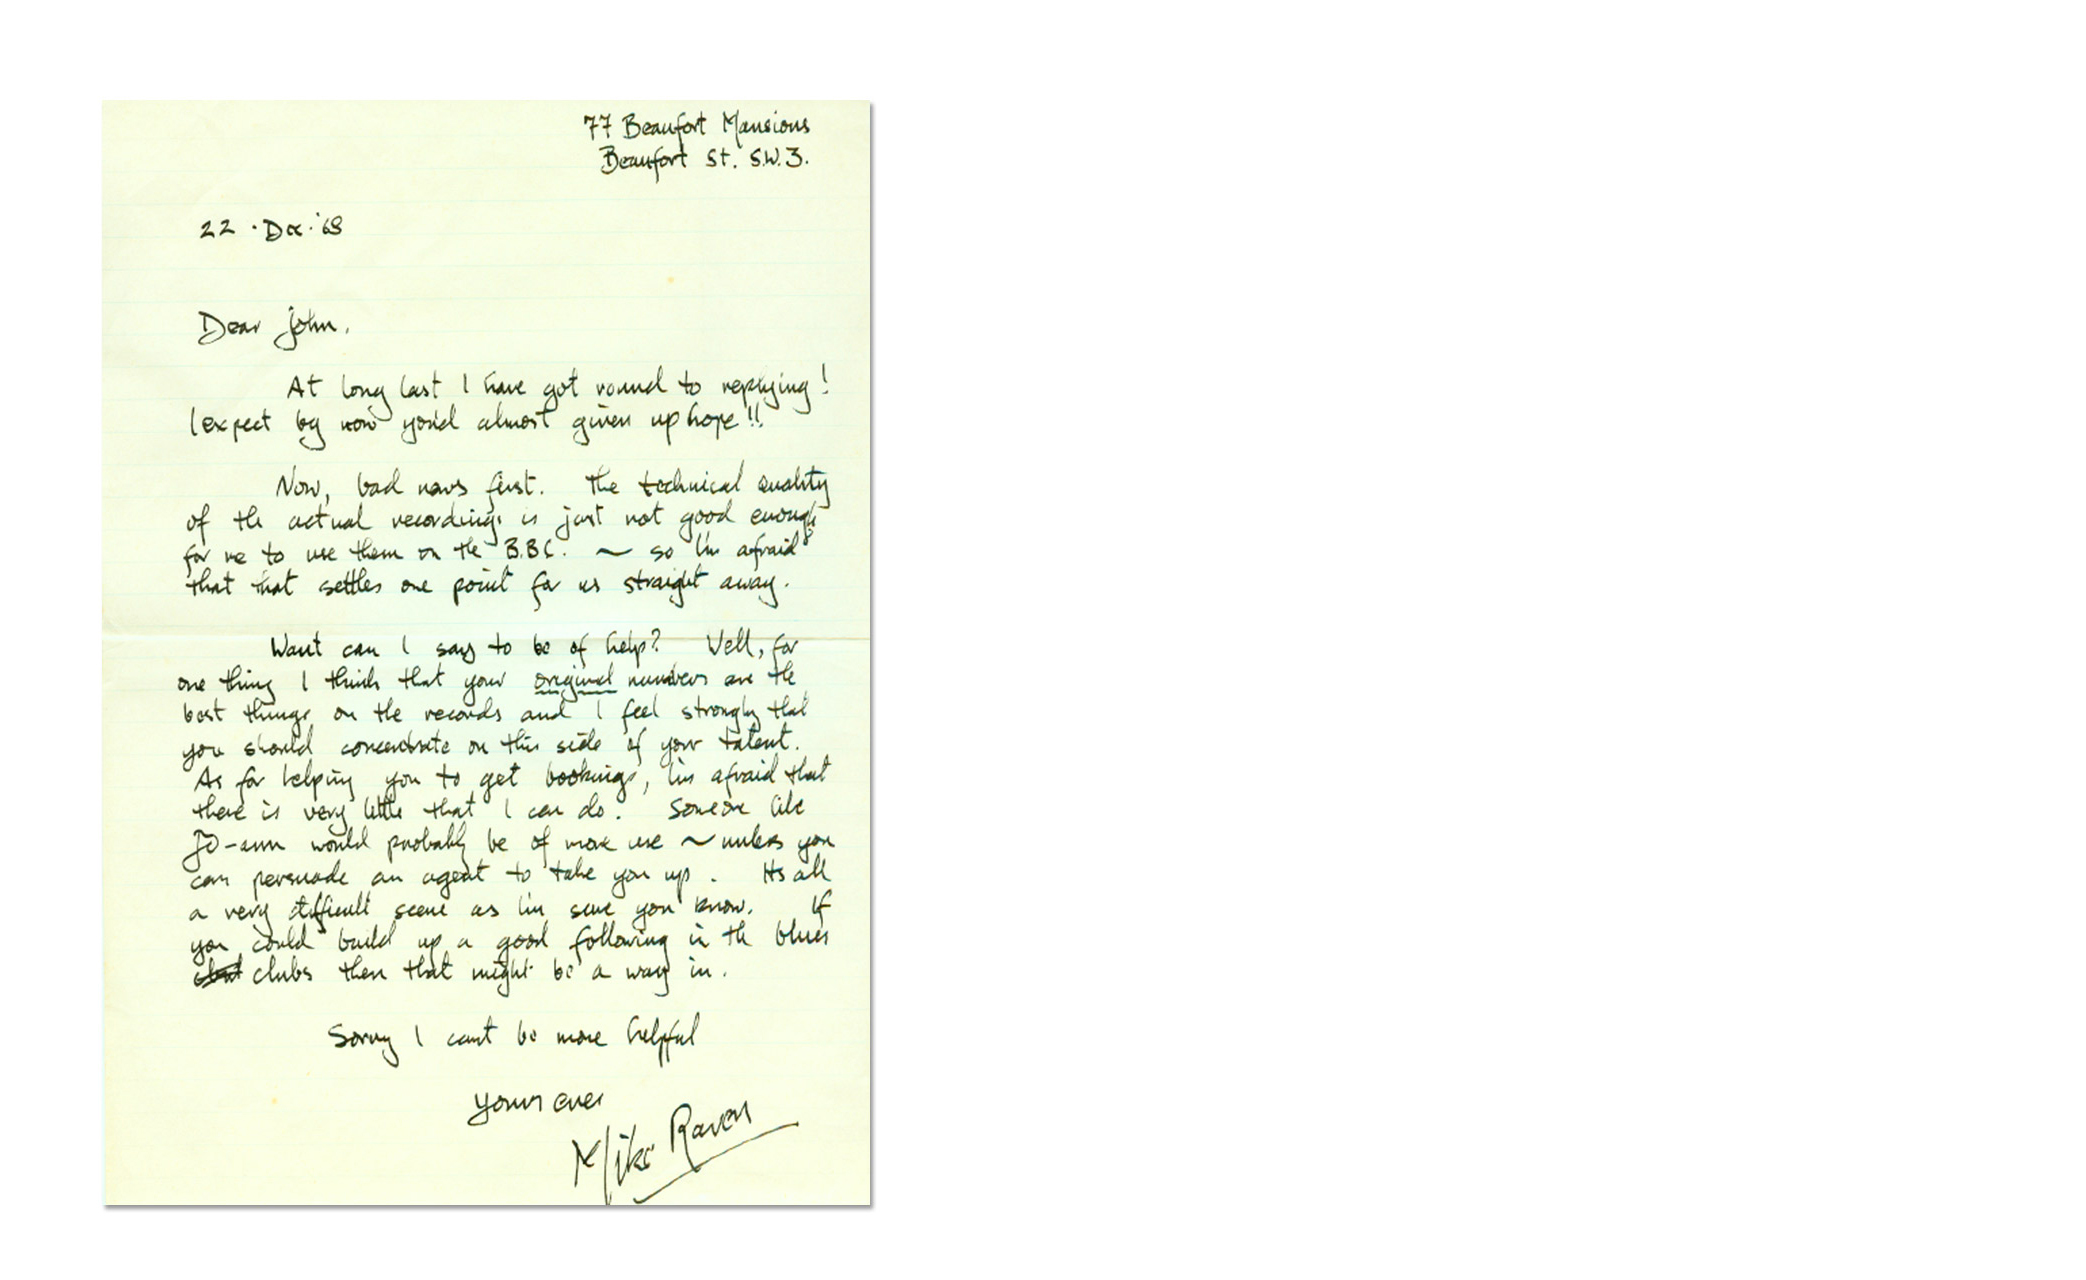 77 Beaufort Mansions
Beaufort St. S.W.3.
22 · Dec · '68
Dear John,
At long last I have got round to replying!
I expect by now you'd almost given up hope!!
Now, bad news first. The technical quality
of the actual recordings is just not good enough
for me to use them on the B.B.C. ~ so I'm afraid
that that settles one point for us straight away.
What can I say to be of help? Well, for
one thing I think that your original numbers are the
best things on the records and I feel strongly that
you should concentrate on this side of your talent.
As for helping you to get bookings, I'm afraid that
there is very little that I can do. Someone like
Jo-ann would probably be of more use ~ unless you
can persuade an agent to take you up. Its all
a very difficult scene as I'm sure you know. If
you could build up a good following in the blues
clubs then that might be a way in.
Sorry I cant be more helpful
Yours ever
Mike Raven